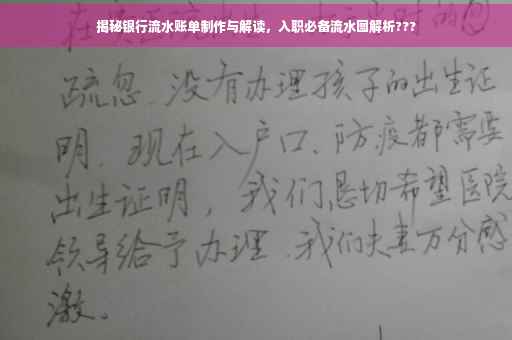 揭秘银行流水账单制作与解读，入职必备流水图解析???
疏忽、没有办理孩子的出生证
明、现在入户口、防疫都需要
出生证明，我们恳切希望医院
领导给予办理、我们夫妻万分感
激。